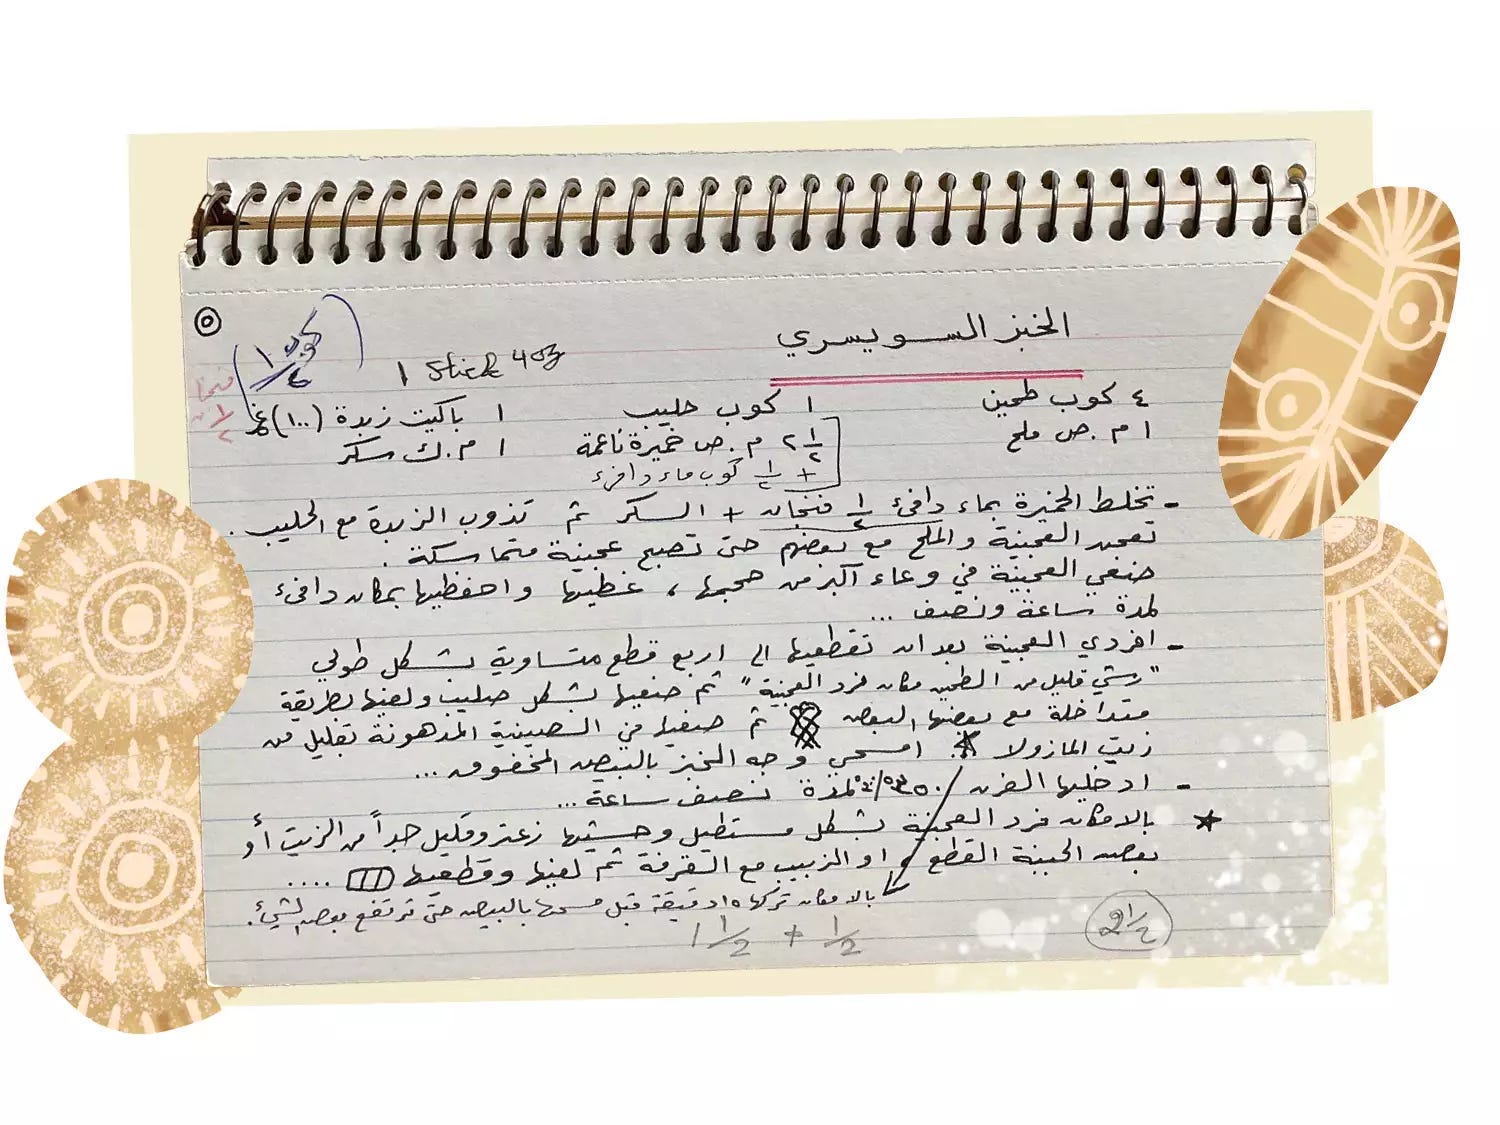 الخبز السويسري
كوب ١/٢
1 Stick 4oz
فنجان ١/٢
٤ كوب طحين
١ كوب حليب
١ باكيت زبدة (١٠٠) غ
١ م.ص ملح
٢ ١/٢ م.ص خميرة ناعمة
١ م.ك سكر
+ ١/٢ كوب ماء دافئ
- تخلط الخميرة بماء دافئ ١/٢ فنجان + السكر ثم تذوب الزبدة مع الحليب .
تعجن العجينة والملح مع بعضهم حتى تصبح عجينة متماسكة .
ضعي العجينة في وعاء أكبر من حجمها ، غطيها واحفظيها بمكان دافئ
لمدة ساعة ونصف ...
- افردي العجينة بعد ان تقطعيها الى اربع قطع متساوية بشكل طولي
"رشي قليل من الطحين مكان فرد العجينة" ثم ضعيها بشكل صليب ولفيها بطريقة
متداخلة مع بعضها البعض ثم ضعيها في الصينية المدهونة بقليل من
زيت المازولا . امسحي وجه الخبز بالبيض المخفوق ...
- ادخليها الفرن ٣٥٠ لمدة نصف ساعة ...
* بالامكان فرد العجينة بشكل مستطيل وحشيها زعتر وقليل جداً من الزيت أو
بعض الجبنة القطع ، او الزبيب مع القرفة ثم لفيها وقطعيها ....
بالامكان تركها ١٥ دقيقة قبل مسحها بالبيض حتى ترتفع بعض الشيئ .
1 1/2 + 1/2
2 1/2